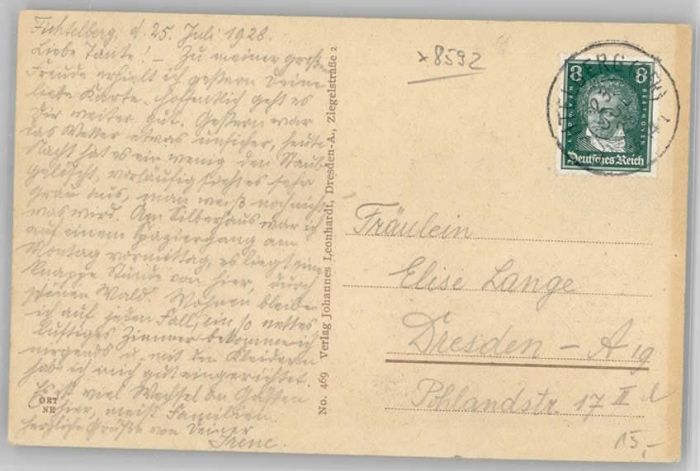 Fichtelberg, d. 25. Juli 1928.
Liebe Tante! – Zu meiner großen
Freude erhielt ich gestern Deine
liebe Karte. Hoffentlich geht es
Dir weiter gut. Gestern war
das Wetter etwas unsicher, heute
Nacht hat es ein wenig den Staub
gelöscht, vorläufig sieht es sehr
grau aus, man weiß noch nicht
was wird. Am Silberhaus war ich
auf einem Spaziergang am
Montag vormittag, es liegt eine
knappe Stunde von hier, durch
schönen Wald. Wohnen bleibe
ich auf jeden Fall, ein so nettes
luftiges Zimmer bekomme ich
nirgends u. mit den Kleidern
hab ich mich gut eingerichtet.
Es ist viel Wechsel an Gästen
hier, meist Familien.
Herzliche Grüße von Deiner
Irene.
ORT
NR
No. 469 Verlag Johannes Leonhardt, Dresden-A., Ziegelstraße 2
*8592
8 8
Deutsches Reich
Fräulein
Elise Lange
Dresden – A 19
Pohlandstr. 17 II
15,-